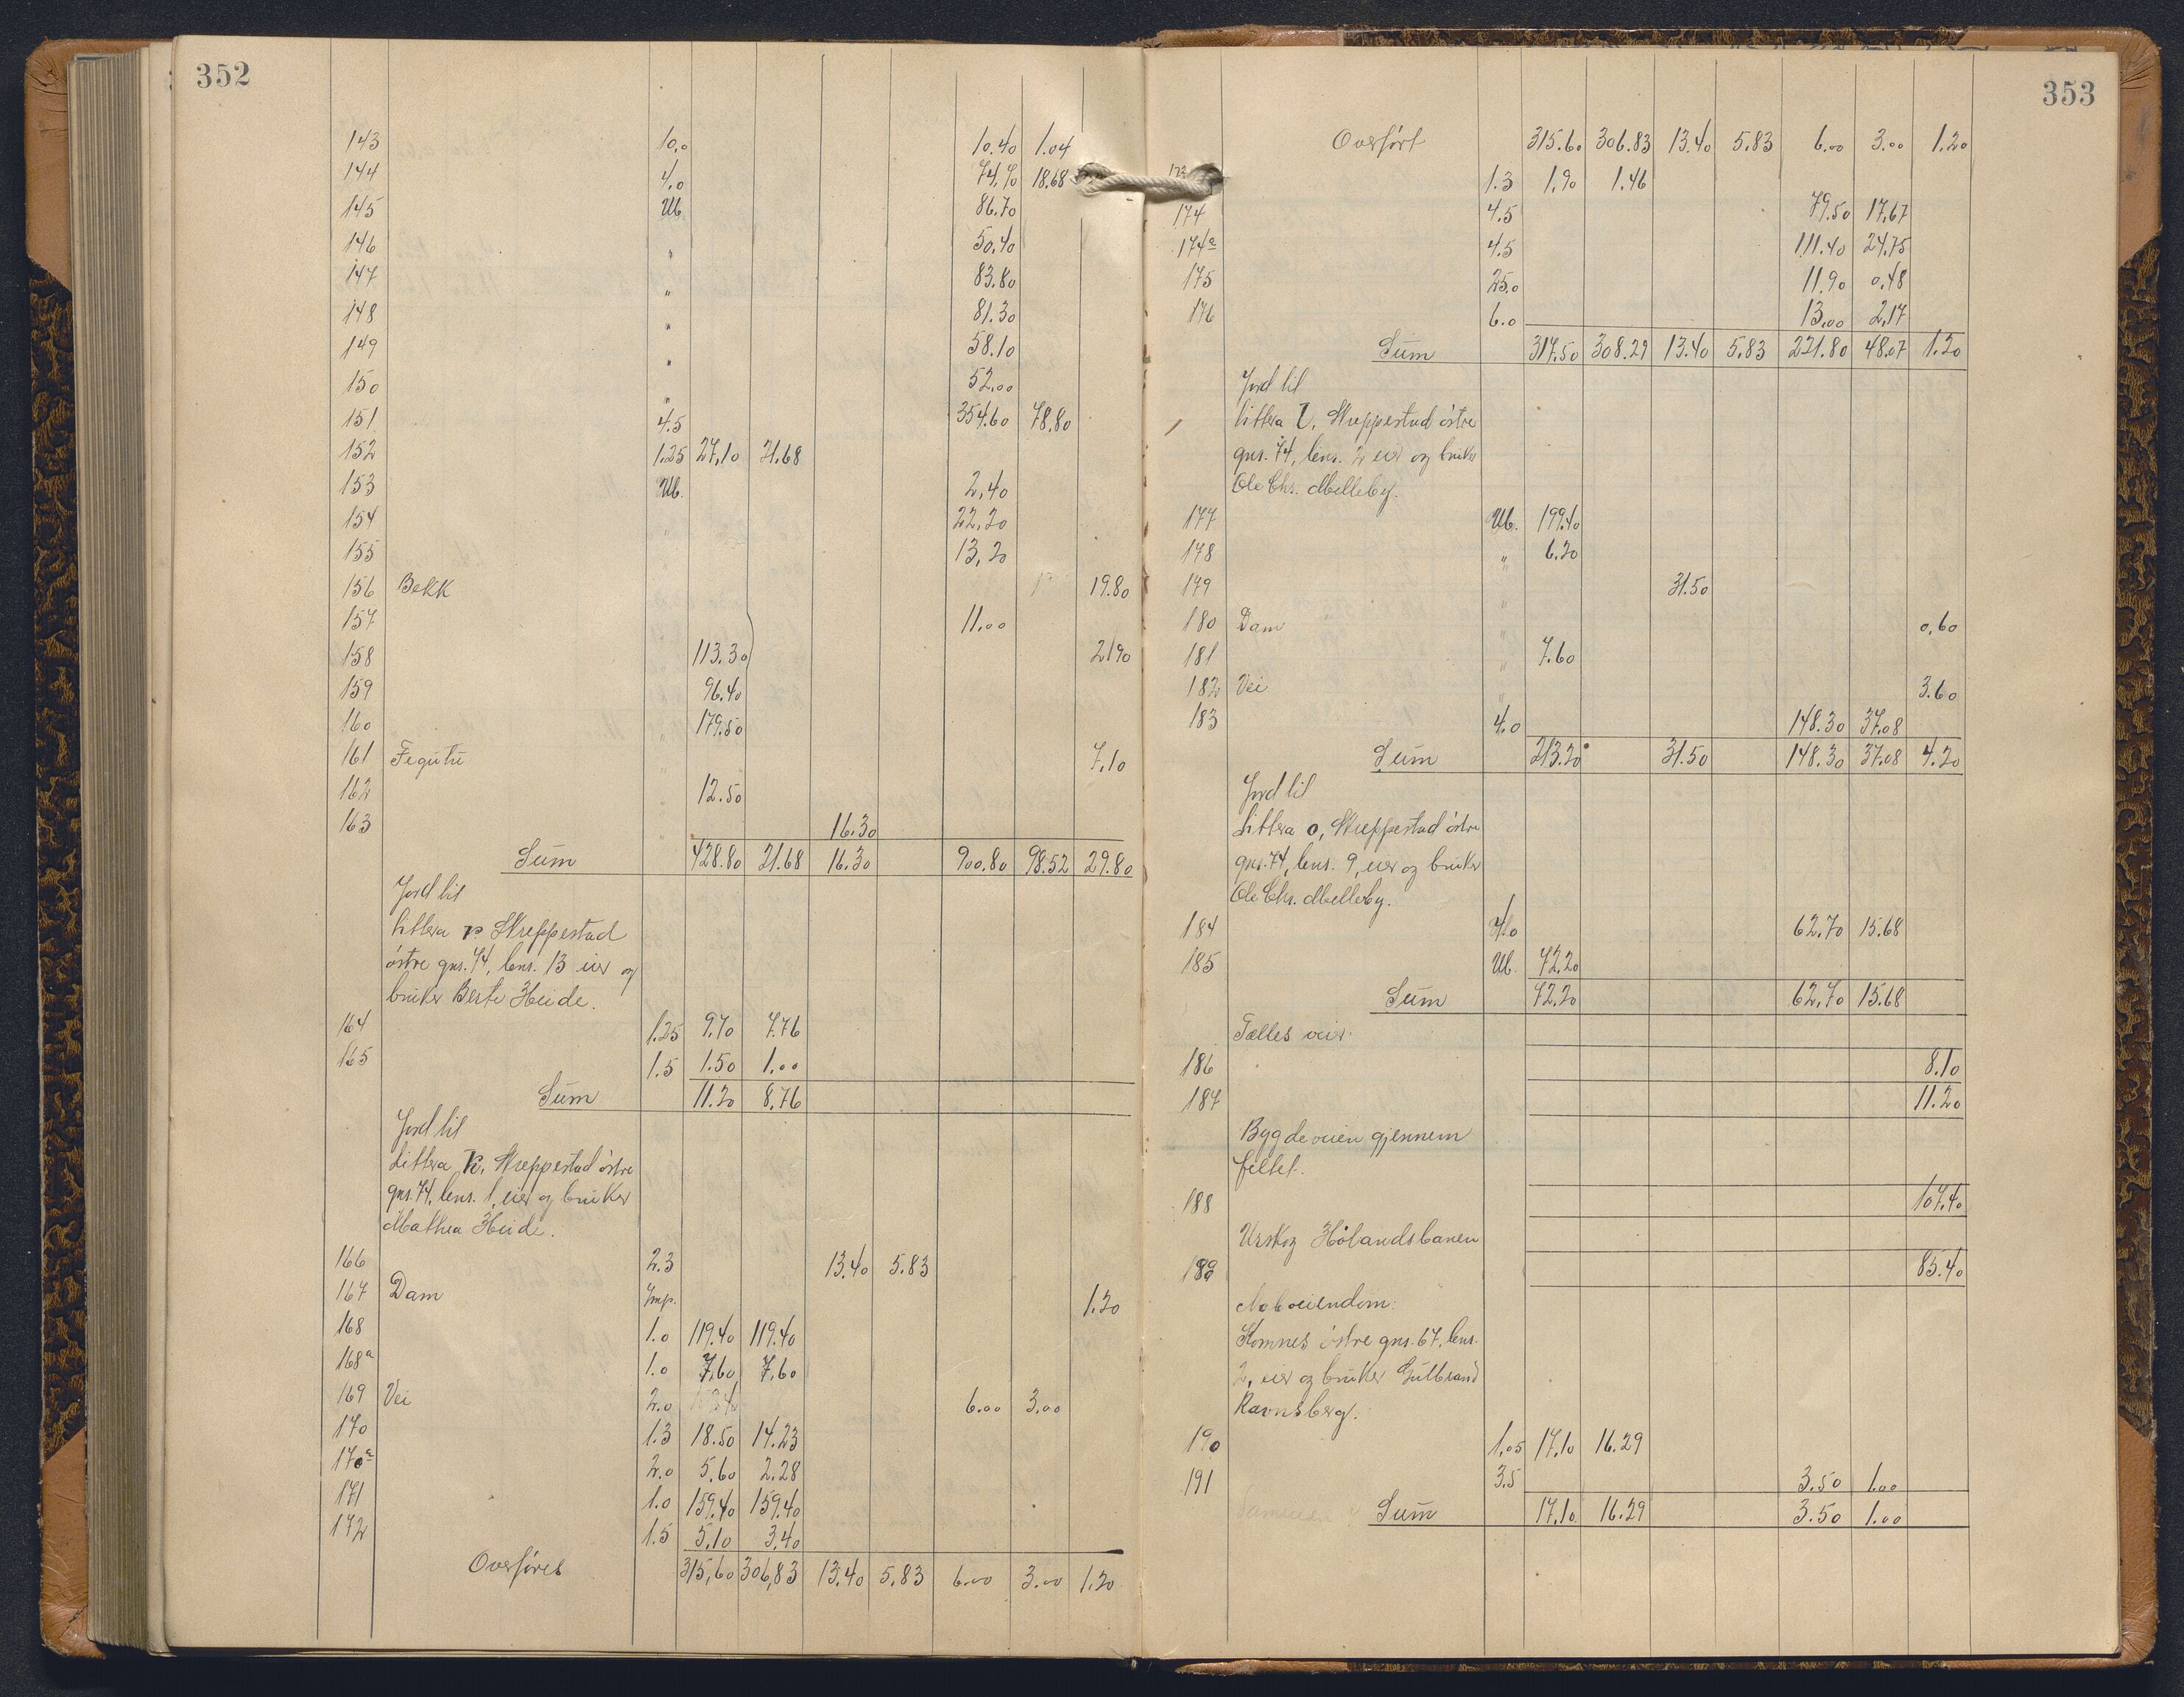 352
143 10,0 10.40 1.04
144 4,0 74,70 18.68
145 Ub. 86.70
146 " 50,40
147 " 83.80
148 " 81.30
149 " 58.10
150 " 52,00
151 4.5 354.60 78,80
152 1.25 27,10 21.68
153 Ub. 2,40
154 " 22,20
155 " 13,20
156 Bekk 19.80
157 11,00
158 " 113.30 2.90
159 " 96.40
160 " 179.50
161 Fegutu " 7,10
162 " 12.50
163 " 16.30
Sum 428.80 21.68 16.30 900.80 98.52 29.80
Jord til
littera p Skreppestad
östre gnr. 74, bnr. 13 eier og
bruker Berte Heide.
164 1.25 9,70 7.76
165 1.5 1.50 1.00
Sum 11.20 8,76
Jord til
Littera K, Skreppestad östre
gnr. 74, bnr. 1, eier og bruker
Mathea Heide.
166 2.3 13.40 5.83
167 Dam Imp. 1.20
168 1.0 119.40 119.40
168a 1.0 7,60 7,60
169 Vei 2.0 6.00 3,00
170 1.3 18.50 14.23
170a 2.0 5,60 2.28
171 1.0 159.40 159.40
172 1.5 5,10 3,40
Overföres 315,60 306,83 13.40 5,83 6.00 3.00 1,20
353
Overfört 315.60 306.83 13.40 5.83 6.00 3.00 1.20
173 1.3 1,90 1.46
174 4.5 79.50 17,67
174a 4.5 111.40 24.75
175 25.0 11.90 0.48
176 6.0 13,00 2,17
Sum 317.50 308.29 13.40 5,83 221.80 48.07 1.20
Jord til
littera l, Skreppestad östre
gnr. 74, bnr. 2 eier og bruker
Ole Chr. Melleby.
177 Ub. 199.40
178 " 6.20
179 " 31.50
180 Dam " 0,60
181 " 7.60
182 Vei " 3.60
183 4.0 148.30 37.08
Sum 213.20 31.50 148.30 37.08 4.20
Jord til
Littera o, Skreppestad östre
gnr. 74, bnr. 9, eier og bruker
Ole Chr. Melleby.
184 4.0 62.70 15.68
185 Ub. 72.20
Sum 72,20 62,70 15.68
Fælles veier.
186 8.10
187 11.20
Bygdeveien gjennem
feltet.
188 107.40
Urskog Hölandsbanen
189 85.40
Naboeiendom:
Komnes östre gnr. 67, bnr.
2, eier og bruker Gulbrand
Ravnsberg.
190 1,05 17,10 16.29
191 3.5 3.50 1.00
Sum 17,10 16.29 3.50 1.00